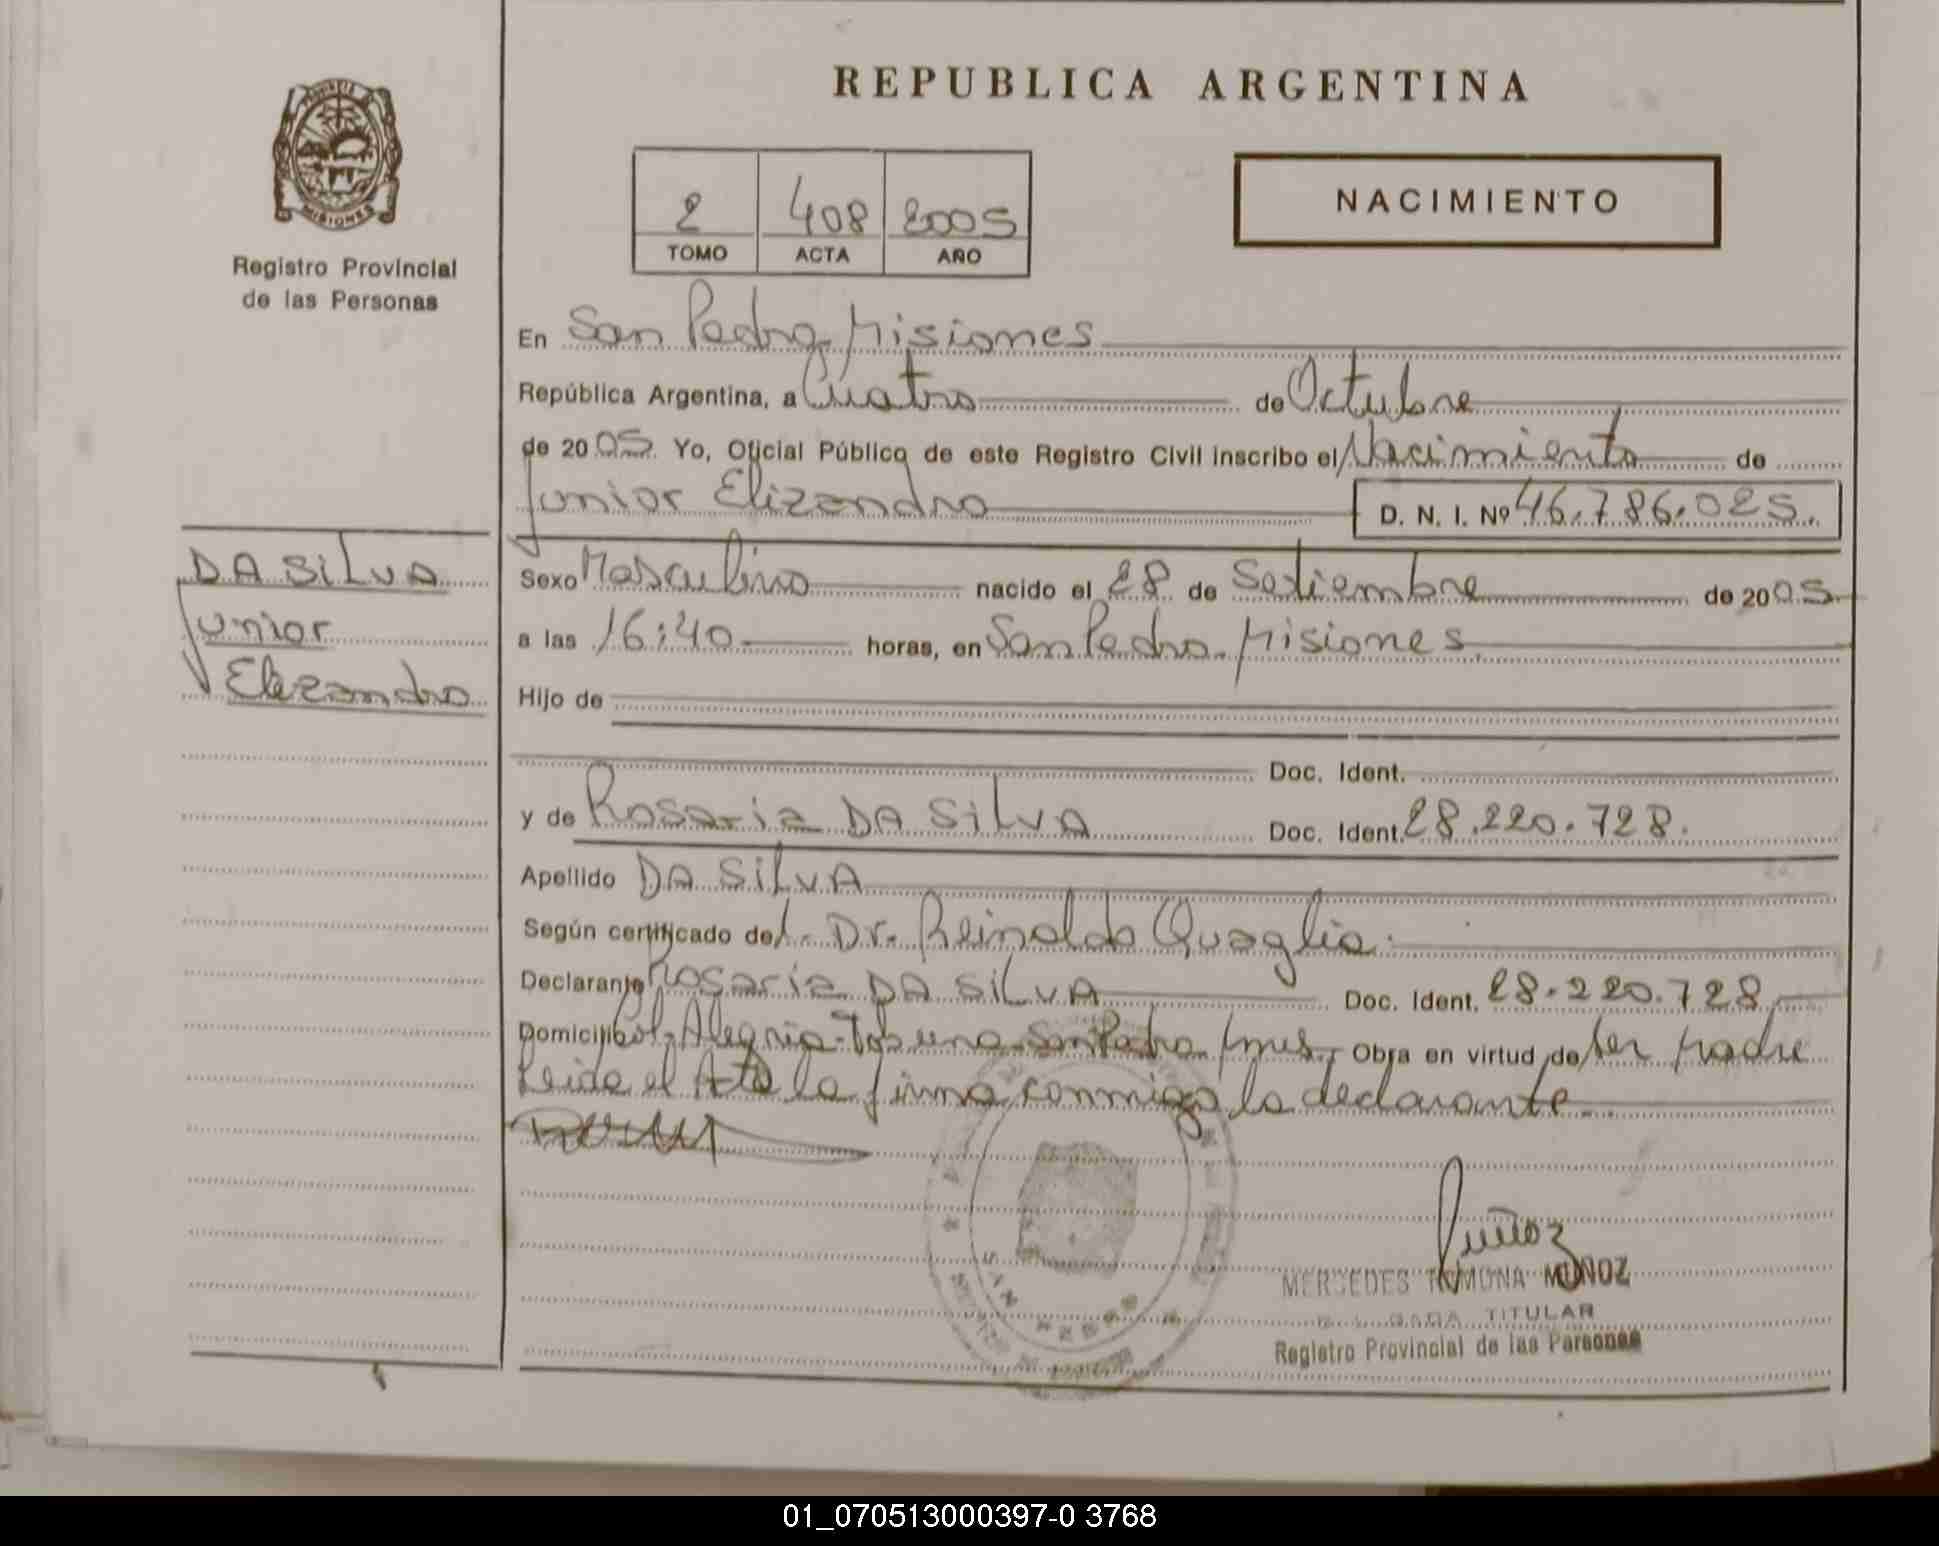 REPUBLICA ARGENTINA
PROVINCIA DE
MISIONES
Registro Provincial
de las Personas
2 408 2005
TOMO ACTA AÑO
NACIMIENTO
En San Pedro, Misiones
República Argentina, a Cuatro de Octubre
de 2005. Yo, Oficial Público de este Registro Civil inscribo el Nacimiento de
Junior Elizandro D. N. I. Nº 46.786.025.
DA SILVA
Junior
Elizandro
Sexo Masculino nacido el 28 de Setiembre de 2005
a las 16:40 horas, en San Pedro. Misiones.
Hijo de
Doc. Ident.
y de Rosaria DA SILVA Doc. Ident. 28.220.728.
Apellido DA SILVA
Según certificado del. Dr. Reinaldo Quaglia.
Declarante Rosaria DA SILVA Doc. Ident. 28.220.728
Domicilio Col. Alegria-Tobuna San Pedro Mnes. Obra en virtud de ser madre
Leida el Acta la firma conmigo la declarante.
SAN PEDRO
Muñoz
MERCEDES RAMONA MUÑOZ
DELEGADA TITULAR
Registro Provincial de las Personas
01_070513000397-0 3768